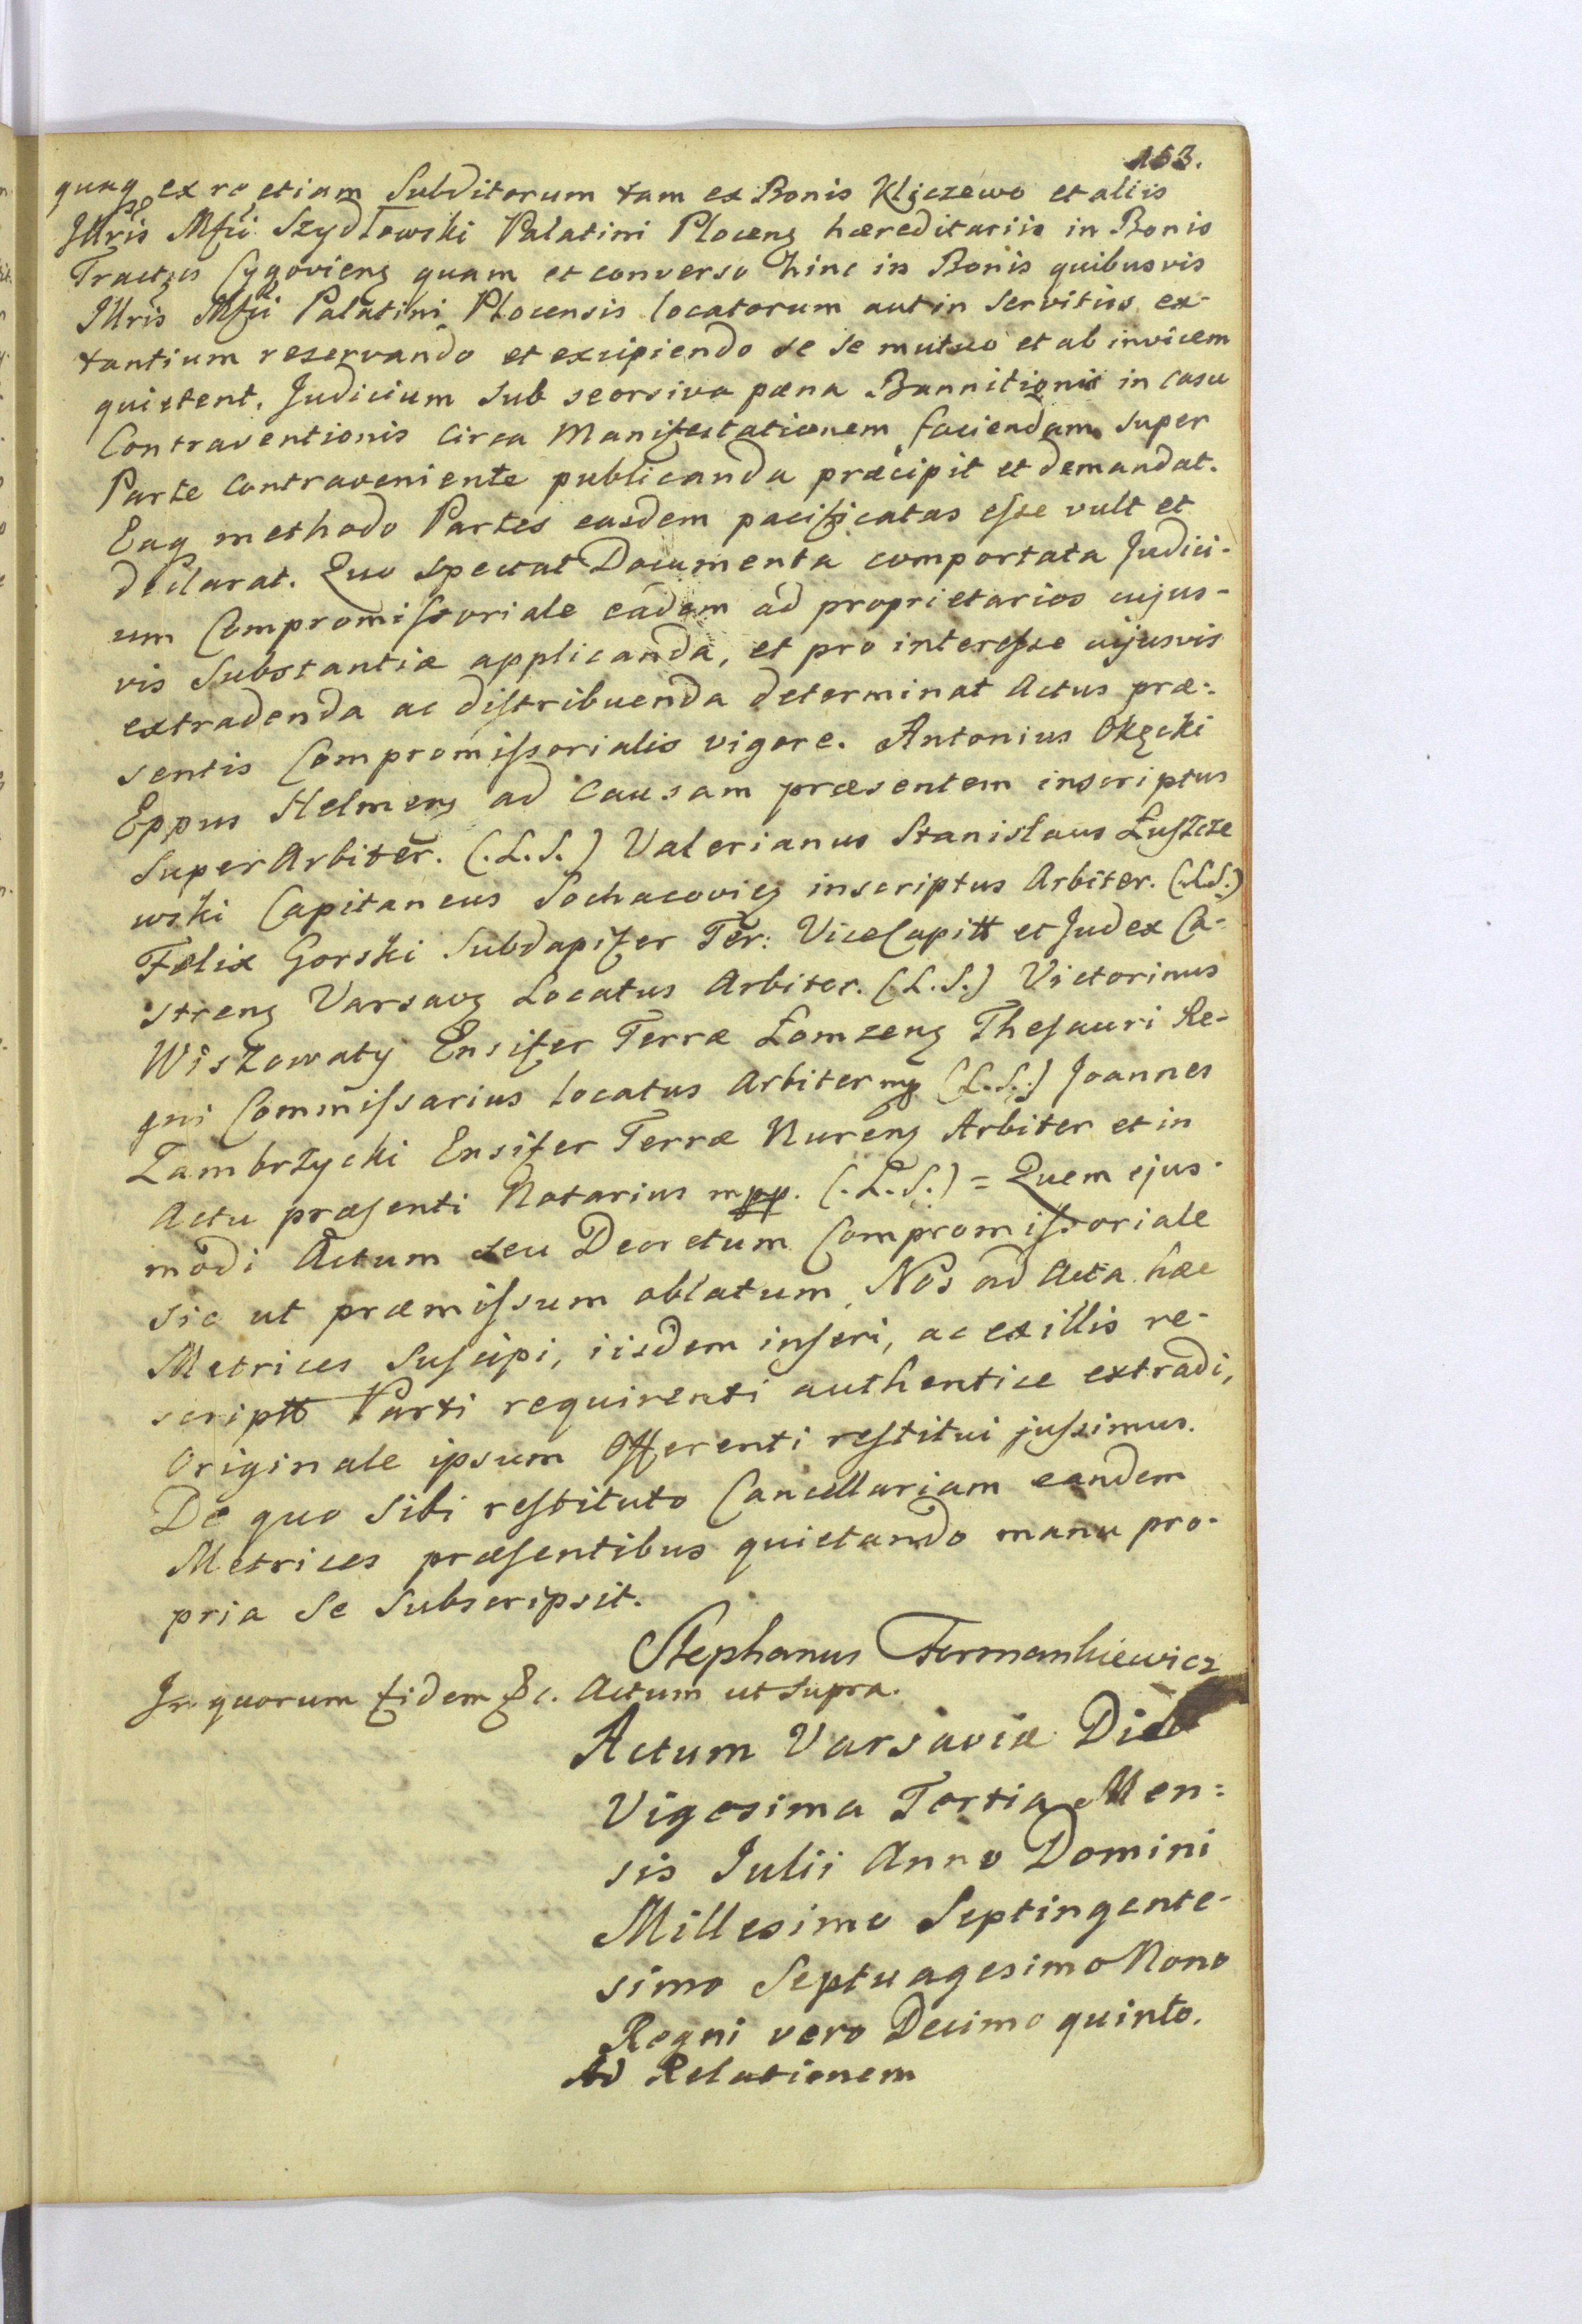 153.
quaq ex re etiam Subditorum tam ex Bonis Kliczewo et aliis
Illris Mfci Szydłowski Palatini Plocens hæreditariis in Bonis
Tractus Cygoviens quam et converso hinc in Bonis quibusvis
Illris Mfci Palatini Plocensis locatorum aut in Servitiis ex-
tantium reservando et excipiendo se se mutuo et ab invicem
quietent. Judicium Sub seorsiva pæna Bannitionis in casu
Contraventionis circa Manifestationem faciendam super
Parte contraveniente publicanda præcipit et demandat.
Eaq methodo Partes easdem pacificatas esse vult et
declarat. Quo spectat Documenta comportata Judici-
um Compromissoriale eadem ad proprietarios cujus-
vis Substantiæ applicanda, et pro interesse cujusvis
extradenda ac distribuenda determinat Actus præ-
sentis Compromissorialis vigore. Antonius Okęcki
Eppus Helmens ad Causam præsentem inscriptus
SuperArbiter. (.L.S.) Valerianus Stanislaus Łuszcze
wski Capitaneus Sochacovien inscriptus Arbiter. (.L.S.)
Felix Gorski Subdapifer Ter: ViceCapitt et Judex Ca-
strens Varsavs Locatus Arbiter. (L.S.) Victorinus
Wiszowaty Ensifer Terræ Łomzens Thesauri Re-
gni Commissarius locatus Arbiter mp (L.S.) Joannes
Zambrzycki Ensifer Terræ Nurens Arbiter et in
Actu præsenti Notarius mpp. (.L.S.) = Quem ejus-
modi Actum seu Decretum Compromissoriale
sic ut præmissum oblatum, Nos ad Acta hæc
Metrices Suscipi, iisdem inseri, ac ex illis re-
scriptt Parti requirenti authentice extradi,
Originale ipsum Offerenti restitui jussimus.
De quo sibi restituto Cancellariam eandem
Metrices præsentibus quietando manu pro-
pria se Subscripsit.
Stephanus Fermankiewicz
In quorum fidem &c. Actum ut supra.
Actum Varsaviæ Die
Vigesima Tertia Men:
sis Julii Anno Domini
Millesimo Septingente-
simo Septuagesimo Nono
Regni vero Decimo quinto.
Ad Relationem